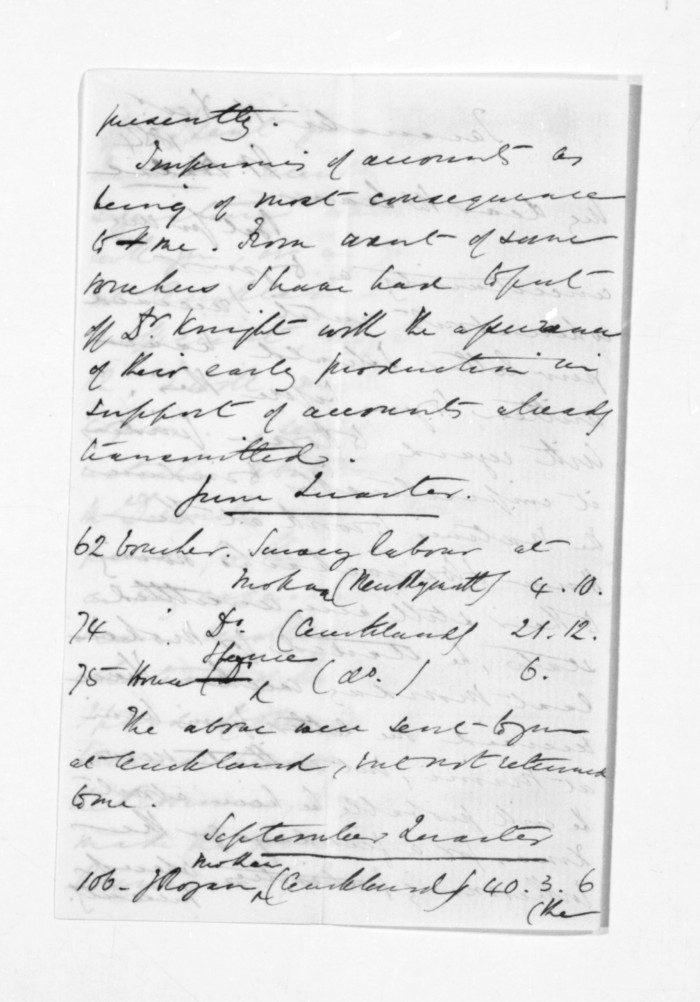 presently.
Imprimis of accounts as
being of most consequence
to me. From want of some
vouchers I have had to put
off Dr. Knight with the assurance
of their early production in
support of accounts already
transmitted.
June Quarter.
62 Voucher. Survey labour at
Mokau (New Plymouth) 4.10.
74 " Do. (Auckland) 21.12.
75 House (do.) 6.
The above were sent to you
at Auckland, but not returned
to me.
September Quarter
Mokau
106 - J Rogan (Auckland) 40.3.6
(the